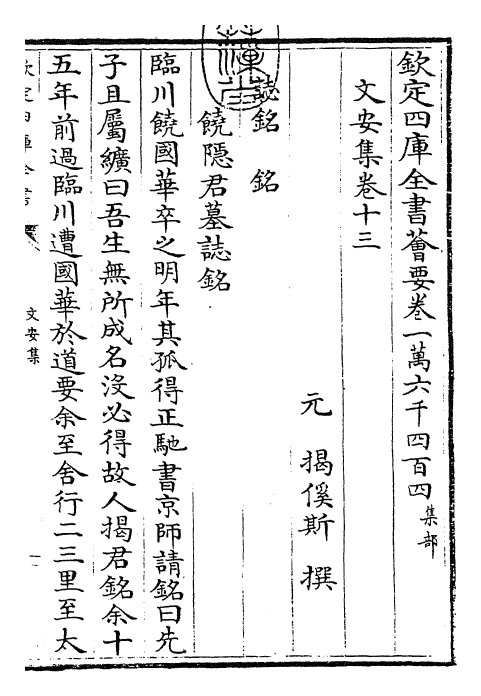 欽定四庫全書薈要卷一萬六千四百四 集部
文安集卷十三
元 揭傒斯 撰
誌銘 銘
饒隱君墓誌銘
臨川饒國華卒之明年其孤得正馳書京師請銘曰先
子且屬纊曰吾生無所成名沒必得故人揭君銘余十
五年前過臨川遭國華於道要余至舍行二三里至太
文安集
一